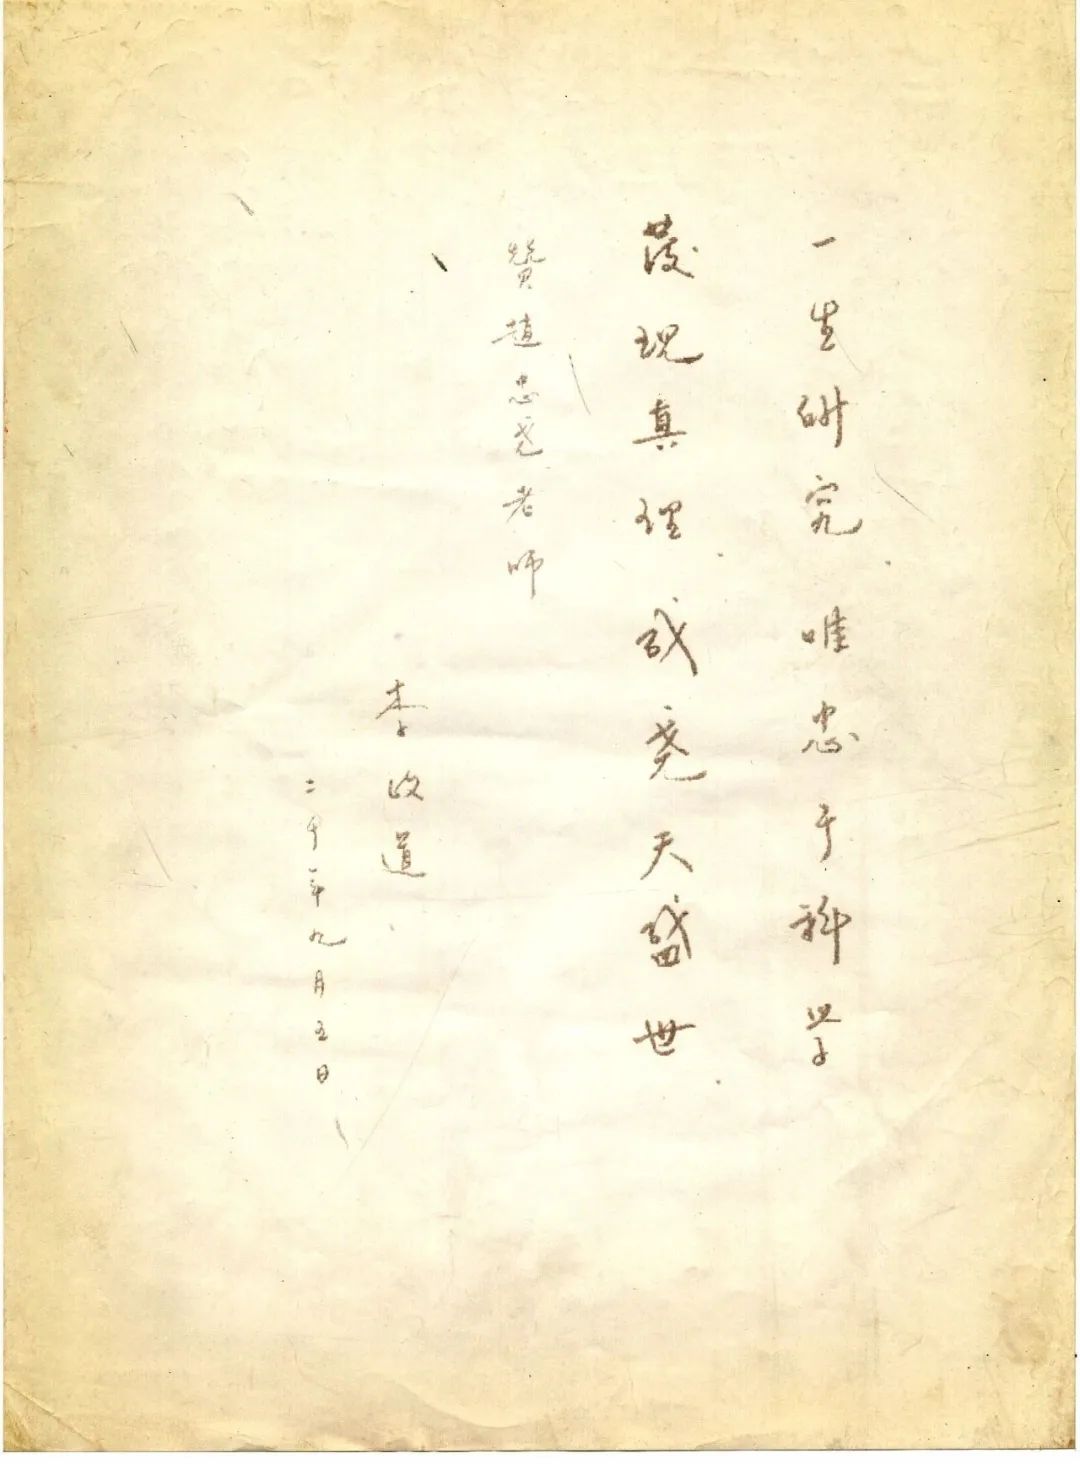 一生研究唯忠于科学
發现真理成尧天盛世
赞趙忠尧老师
李政道
二千年九月五日